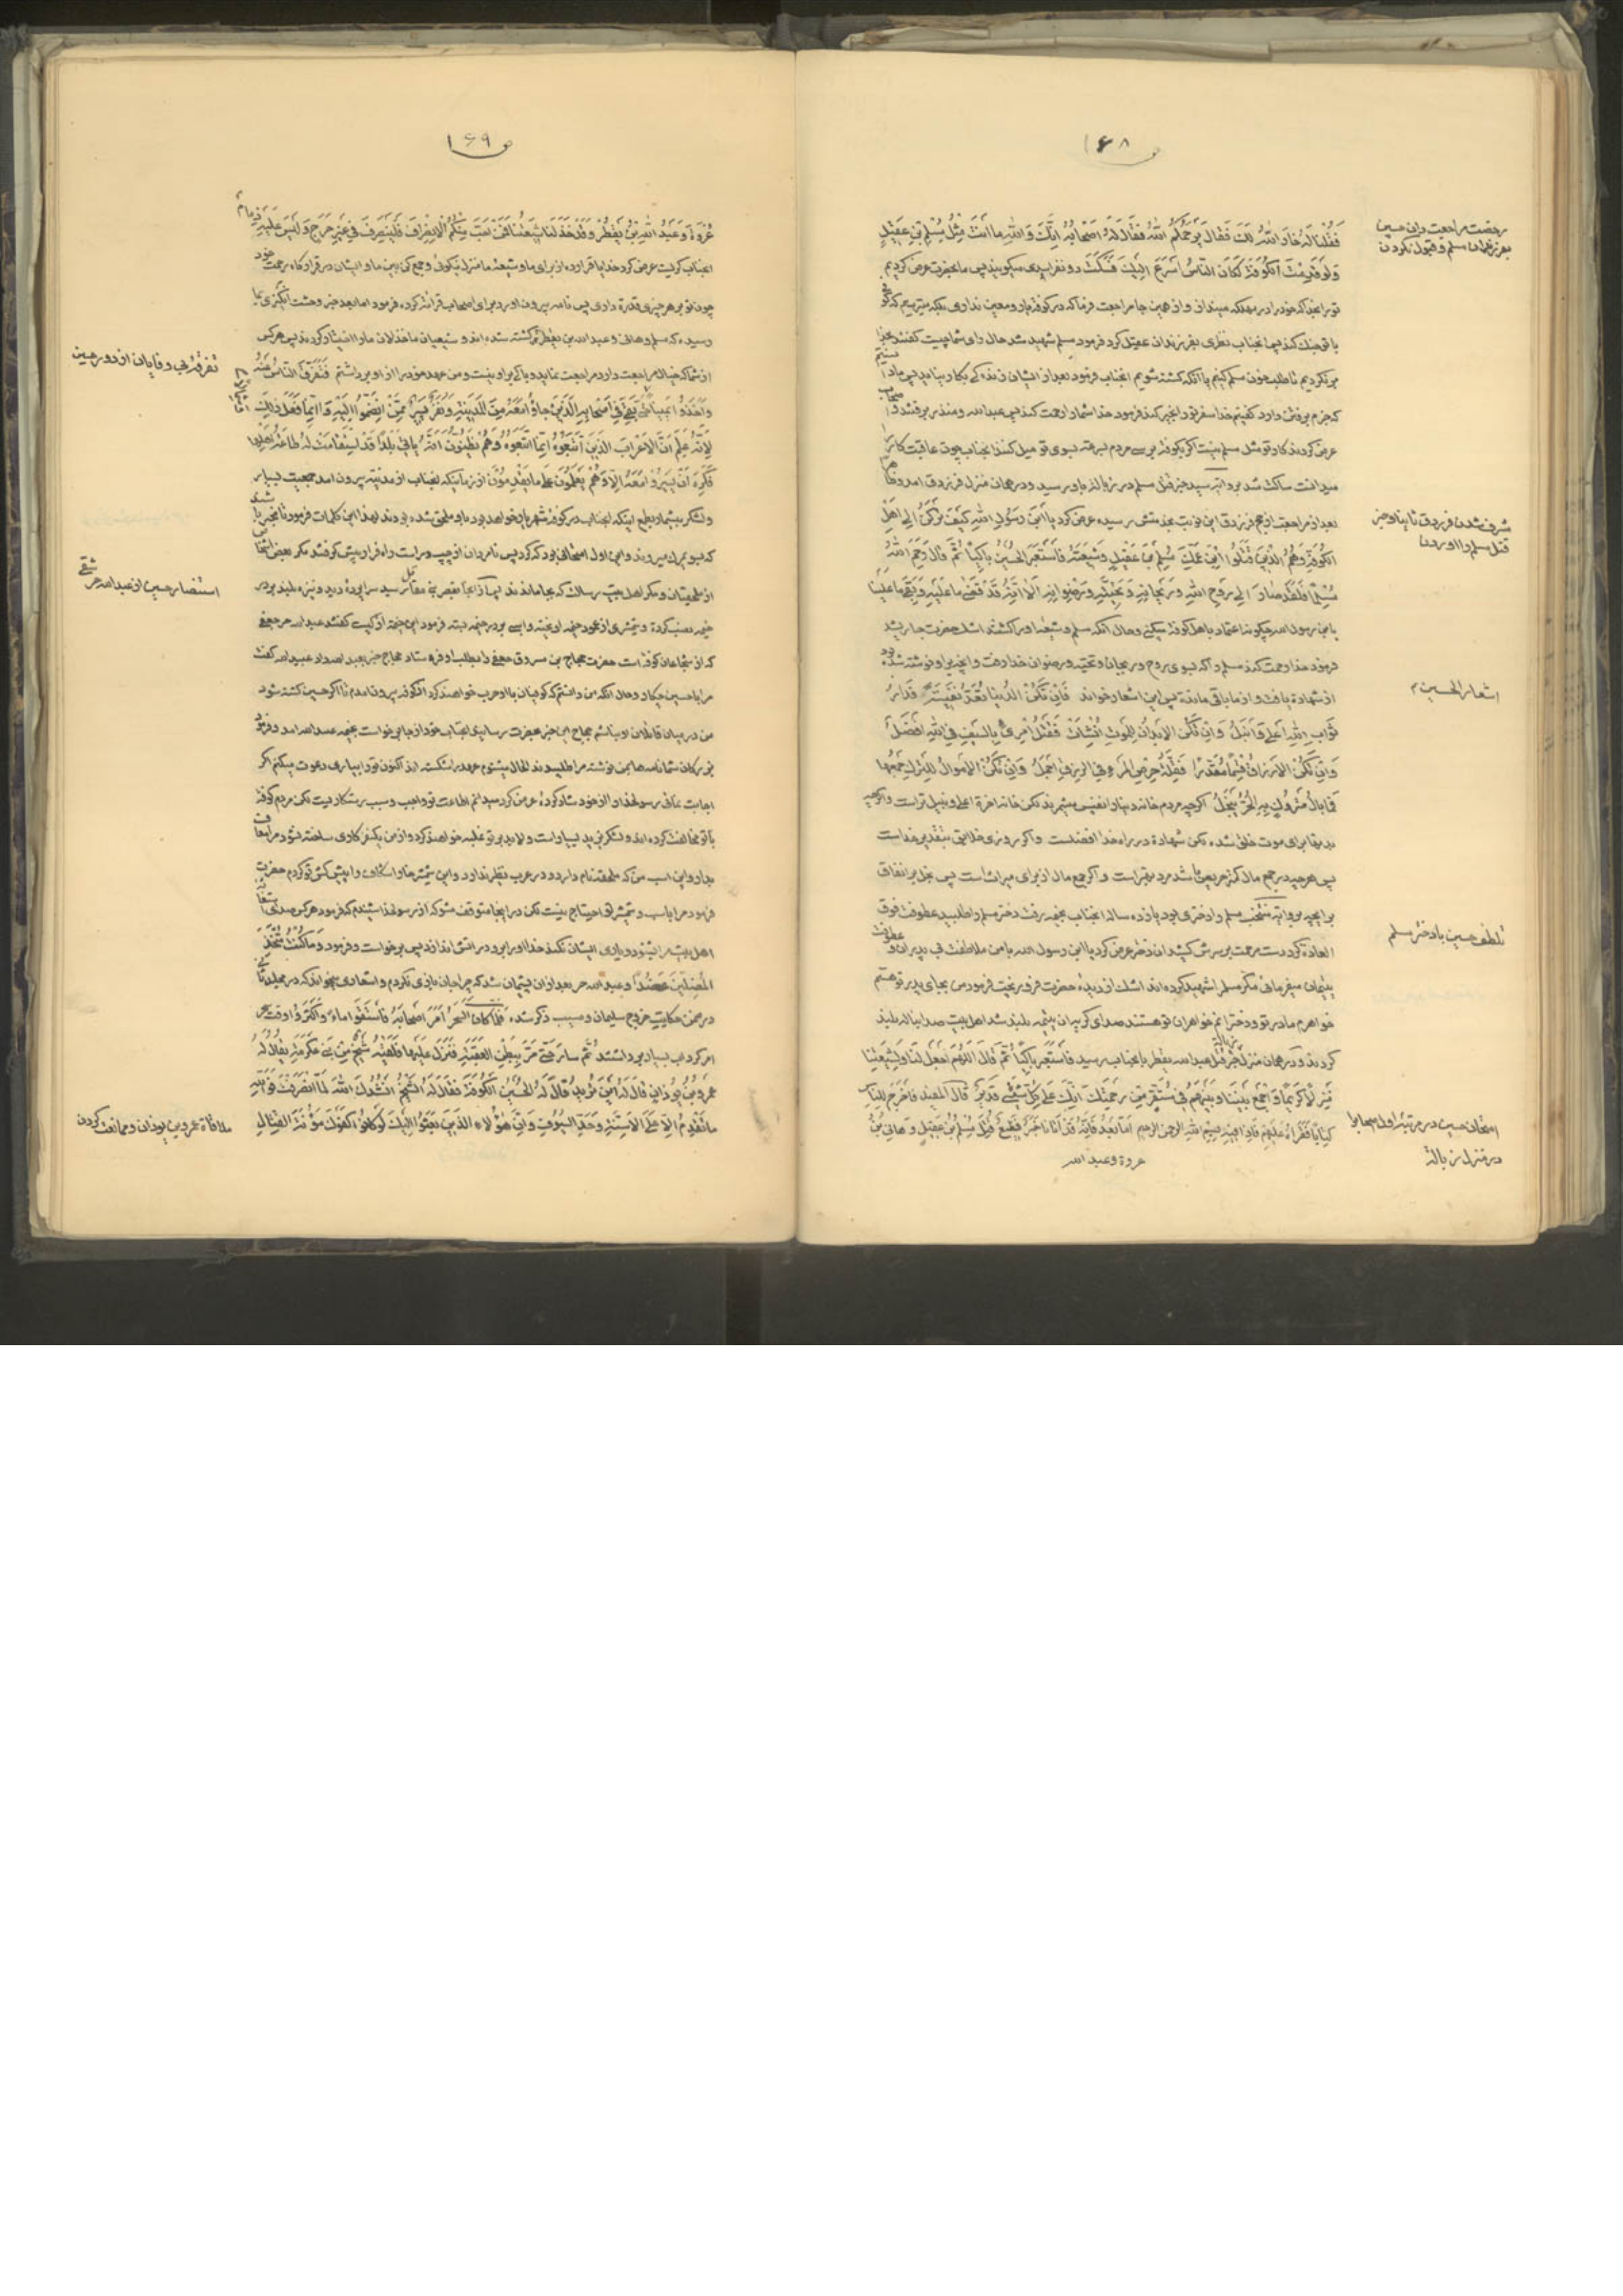 ص ۱۶۸
رخصت مراجعت دادن حسین
بفرزندان مسلم و قبول نکردن
فَقُلْنا لَهُ خارَ اللّهُ لَكَ فَقالَ یَرْحَمُکُمُ اللّهُ فَقالَ لَهُ اَصْحابُهُ اِنَّكَ وَاللّهِ ما اَنْتَ مِثْلُ مُسْلِمِ بْنِ عَقیلٍ
وَلَوْ قَدِمْتَ الکُوفَةَ لَکانَ النّاسُ اَسْرَعَ اِلَیْكَ فَسَکَتَ دو نفر اسدی میکویند پس ما بحضرت عرض کردیم
تو را بخدا که خود را در مهلکه مینداز و از همین جا مراجعت فرما که در کوفه یار و معین نداری بلکه میترسیم که
با تو جنك کنند پس انجناب نظری بفرزندان عقیل کرد فرمود مسلم شهید شد حال رای شما چیست کفتند
بر نکردیم تا طلب خون مسلم کنیم یا آنکه کشته شویم انجناب فرمود بعد از ایشان زندکی بکار نیاید پس
که عزم برفتن دارد کفتیم خدا سفر تو را بخیر کند فرمود خدا شما را رحمت کند پس عبدالله و منذر برفتند و
عرض کردند کار تو مثل مسلم نیست اکر بکوفه برسی مردم بسرعت بسوی تو میل کنند انجناب چون عاقبت کار را
میدانست ساکت شد بروایت سید خبر قتل مسلم در زباله باو رسید و در همان منزل فرزدق امد و
مشرف شدن فرزدق ثانیا و خبر
قتل مسلم را اوردن
بعد از مراجعت از حج فرزدق این نوبت بخدمتش رسیده عرض کرد یَا ابْنَ رَسُولِ اللّهِ کَیْفَ تَرْکَنُ اِلی اَهْلِ
الکُوفَةِ وَهُمُ الَّذینَ قَتَلُوا ابْنَ عَمِّكَ مُسْلِمَ بْنَ عَقیلٍ وَشیعَتَهُ فَاسْتَعْبَرَ الحُسَیْنُ باکِیاً ثُمَّ قالَ رَحِمَ اللّهُ
مُسْلِماً فَلَقَدْ صارَ اِلی رَوْحِ اللّهِ وَ رَیْحانِهِ وَ تَحِیَّتِهِ وَ رِضْوانِهِ اَلا اِنَّهُ قَدْ قَضی ما عَلَیْهِ وَ بَقِیَ ما عَلَیْنا
یا بن رسول الله چکونه اعتماد باهل کوفه میکنی و حال آنکه مسلم و شیعه او را کشتند اشك حضرت جاری شد
فرمود خدا رحمت کند مسلم را که بسوی روح و ریحان و تحیت و رضوان خدا رفت و انچه بر او نوشته شده بود
اشعار الحسین ع
از شهادة یافت و از ما باقی مانده پس این اشعار خواند فَاِنْ تَکُنِ الدُّنْیا تُعَدُّ نَفیسَةً فَدارُ
ثَوابِ اللّهِ اَعْلی وَ اَنْبَلُ وَ اِنْ تَکُنِ الاَبْدانُ لِلْمَوْتِ اُنْشِاَتْ فَقَتْلُ امْرِءٍ بِالسَّیْفِ فِی اللّهِ اَفْضَلُ
وَ اِنْ تَکُنِ الاَرْزاقُ قِسْماً مُقَدَّراً فَقِلَّةُ حِرْصِ المَرْءِ فِی الرِّزْقِ اَجْمَلُ وَ اِنْ تَکُنِ الاَمْوالُ لِلتَّرْكِ جَمْعُها
فَما بالُ مَتْرُوكٍ بِهِ الحُرُّ یَبْخَلُ اکرچه مردم خانه دنیا را نفیس میشمرند لکن خانه اخرة اعلی و نبیل تر است و اکرچه
بدنها برای موت خلق شده لکن شهادة در راه خدا افضلست و اکر روزی خلایق بتقدیر خداست
پس هر چند در جمع مال کمتر حریص باشد مرد بهتر است و اکر جمع مال از برای میراث است پس بخل بر انفاق
تلطف حسین با دختر مسلم
برای چه بروایت منتخب مسلم را دختری بود یازده ساله انجناب بخیمه رفت دختر مسلم را طلبید عطوفت فوق
العادة کرد دست مرحمت بر سرش کشید ان دختر عرض کرد یا ابن رسول الله با من ملاطفت بی پدران و
یتیمان میفرمائی مکر مسلم را شهید کرده اند اشك از دیده حضرت فرو ریخت فرمود من بجای پدر تو هستم
خواهرم مادر تو و دخترانم خواهران تو هستند صدای کریه ان یتیمه بلند شد اهل بیت صدا بناله بلند
کردند و در همان منزل خبر قتل عبدالله یقطر بانجناب رسید فَاسْتَعْبَرَ باکِیاً ثُمَّ قالَ اللّهُمَّ اجْعَلْ لَنا وَ لِشیعَتِنا
مَنْزِلاً کَریماً وَ اجْمَعْ بَیْنَنا وَ بَیْنَهُمْ فی مُسْتَقَرٍّ مِنْ رَحْمَتِكَ اِنَّكَ عَلی کُلِّ شَیْءٍ قَدیرٌ قالَ المُفیدُ فَاَخْرَجَ لِلنّاسِ
امتحان حسین در مرتبه اول اصحاب را
در منزل زباله
کِتاباً فَقَرَاَهُ عَلَیْهِمْ فَاِذا فیهِ بِسْمِ اللّهِ الرَّحْمنِ الرَّحیمِ اَمّا بَعْدُ فَاِنَّهُ قَدْ اَتانا خَبَرٌ فَظیعٌ قَتْلُ مُسْلِمِ بْنِ عَقیلٍ وَ هانِی بْنِ
عروة و عبدالله
ص ۱۶۹
عُرْوَةَ وَ عَبْدِ اللّهِ بْنِ یَقْطُرْ وَ قَدْ خَذَلَنا شیعَتُنا فَمَنْ اَحَبَّ مِنْکُمُ الاِنْصِرافَ فَلْیَنْصَرِفْ فی غَیْرِ حَرَجٍ وَ لَیْسَ عَلَیْهِ ذِمامٌ
انجناب کریست عرض کرد خدایا قرار ده از برای ما و شیعه ما منزل نیکوئی و جمع کن بین ما و ایشان در قرارکاه رحمت خود
چون تو بر هر چیزی قدرة داری پس نامه بیرون اورد برای اصحاب قرائت کرده فرمود اما بعد خبر وحشت انکیزی بما
رسیده که مسلم و هانی و عبدالله بن یقطر کشته شده اند و شیعیان ما خذلان ما را اختیار کردند پس هر کس
تفرقه بی وفایان از دور حسین
از شما که خیال مراجعت دارد مراجعت نماید و باکی بر او نیست و من عهد خود را از او برداشتم فَتَفَرَّقَ النّاسُ عَنْهُ
وَ اَخَذُوا یَمیناً وَ شِمالاً حَتّی بَقِیَ فی اَصْحابِهِ الَّذینَ جاؤُا مَعَهُ مِنَ المَدینَةِ وَ نَفَرٌ یَسیرٌ مِمَّنْ انْضَمُّوا اِلَیْهِ وَ اِنَّما فَعَلَ ذلِكَ
لِاَنَّهُ عَلِمَ اَنَّ الاَعْرابَ الَّذینَ اتَّبَعُوهُ اِنَّمَا اتَّبَعُوهُ وَ هُمْ یَظُنُّونَ اَنَّهُ یَاْتی بَلَداً قَدِ اسْتَقامَتْ لَهُ طاعَةُ اَهْلِها
فَکَرِهَ اَنْ یَسیرُوا مَعَهُ اِلّا وَ هُمْ یَعْلَمُونَ عَلی ما یَقْدِمُونَ از زمانیکه انجناب از مدینه بیرون امد جمعیت بسیار
و لشکر بیشمار بطمع اینکه انجناب در کوفه شهریاری خواهد بود باو ملحق شده بودند لهذا این کلمات فرمود تا بخبر
که بسوی مرك میروند و این اول امتحانی بود که کرد پس نامردان از چپ و راست راه فرار پیش کرفتند مکر بعضی
استنصار حسین از عبیدالله حر جعفی
از ملحقین و مکر اهل بیت رسالت که بجا ماندند پس از انجا بقصر بنی مقاتل رسید سراپرده دید و نیزه بلند بر در
خیمه نصب کرده و شمشیری از عمود خیمه اویخته و اسبی بر در خیمه بسته فرمود این خیمه از کیست کفتند عبیدالله حر جعفی
که از شجاعان کوفه است حضرت حجاج بن مسروق جعفی را بطلب او فرستاد حجاج خبر بعبیدالله داد عبیدالله کفت
مرا با حسین چکار و حال آنکه من دانستم که کوفیان با او حرب خواهند کرد از کوفه بیرون امدم تا اکر حسین کشته شود
من در میان قاتلان او نباشم حجاج این خبر بحضرت رسانید انجناب خود از جا برخواست بخیمه عبیدالله امد و فرمود
بزرکان شما نامه ها بمن نوشته مرا طلبیدند الحال میشنوم عهد را شکسته اند اکنون تو را بیاری دعوت میکنم اکر
اجابت نمائی رسولخدا را از خود شاد کردهٔ عرض کرد میدانم اطاعت تو واجب و سبب رستکاریست لکن مردم کوفه
با تو مخالفت کرده اند و لشکر یزید بسیار است و لابد بر تو غلبه خواهند کرد و از من یکنفر کاری ساخته نشود مرا معاف
بدار و این اسب من که ملحقه نام دارد و در عرب نظیر ندارد و این شمشیر خارا شکاف را پیش کش تو کردم حضرت
فرمود مرا باسب و شمشیر تو احتیاج نیست لکن در اینجا متوقف مشو که از رسولخدا شنیدم که فرمود هر کس صدای استغاثه
اهل بیت مرا بشنود و یاری ایشان نکند خدا او را برو در اتش اندازد پس برخواست و فرمود وَ ما کُنْتُ مُتَّخِذَ
المُضِلّینَ عَضُداً و عبیدالله حر بعد از ان پشیمان شد که چرا جان بازی نکردم و اشعاری میخواند که در مجلد ثانی
در ضمن حکایت خروج سلیمان و مسیب ذکر شده فَلَمّا کانَ السَّحَرُ اَمَرَ اَصْحابَهُ فَاسْتَقَوْا ماءً وَ اَکْثَرُوا وقت سحر
امر کرد اب بسیار برداشتند ثُمَّ سارَ حَتّی مَرَّ بِبَطْنِ العَقَبَةِ فَنَزَلَ عَلَیْها فَلَقِیَهُ شَیْخٌ مِنْ بَنی عِکْرِمَةَ یُقالُ لَهُ
عَمْرُو بْنُ یُوذانَ قالَ لَهُ اَیْنَ تُریدُ قالَ لَهُ الحُسَیْنُ الکُوفَةَ فَقالَ لَهُ الشَّیْخُ اَنْشُدُكَ اللّهَ لَمّا انْصَرَفْتَ فَوَاللّهِ
ملاقاة عمرو بن یوذان و ممانعت کردن
ما تَقْدِمُ اِلّا عَلَی الاَسِنَّةِ وَ حَدِّ السُّیُوفِ وَ اِنَّ هؤُلاءِ الَّذینَ بَعَثُوا اِلَیْكَ لَوْ کانُوا کَفَوْكَ مَؤُنَةَ القِتالِ